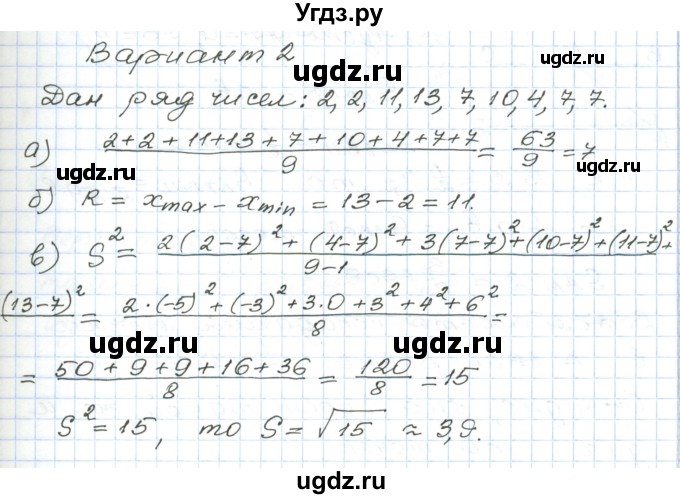 Угдз.ру
Вариант 2
ugdz.ru ugdz.ru
Дан ряд чисел: 2, 2, 11, 13, 7, 10, 4, 7, 7.
а) (2+2+11+13+7+10+4+7+7)/9 = 63/9 = 7
ugdz.ru ugdz.ru
б) R = x_max − x_min = 13 − 2 = 11.
в) S² = (2(2−7)² + (4−7)² + 3(7−7)² + (10−7)² + (11−7)² +
9−1
(13−7)² = (2·(−5)² + (−3)² + 3·0 + 3² + 4² + 6²)/8 =
ugdz.ru ugdz.ru
= (50 + 9 + 9 + 16 + 36)/8 = 120/8 = 15
S² = 15, то S = √15 ≈ 3,9.
ugdz.ru ugdz.ru